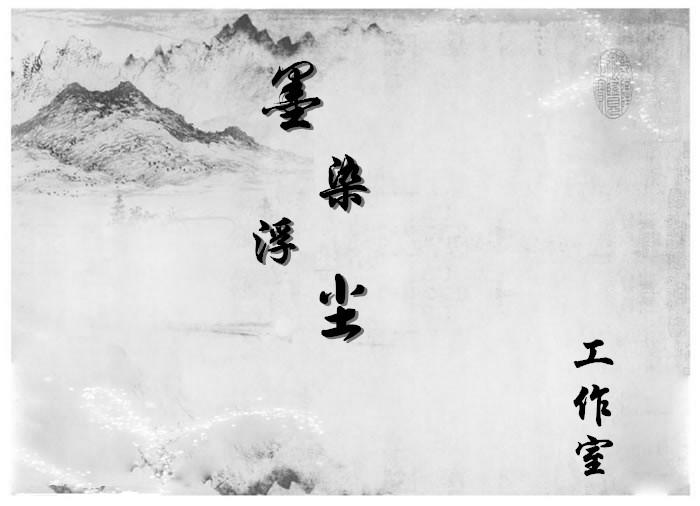 墨染浮尘
工作室